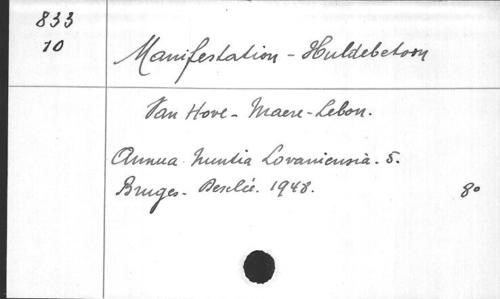 833
10
Manifestation - Huldebetoon
Van Hove - Maere - Lebon.
Annua Nuntia Lovaniensia. 5.
Bruges - Desclée. 1948.
8°